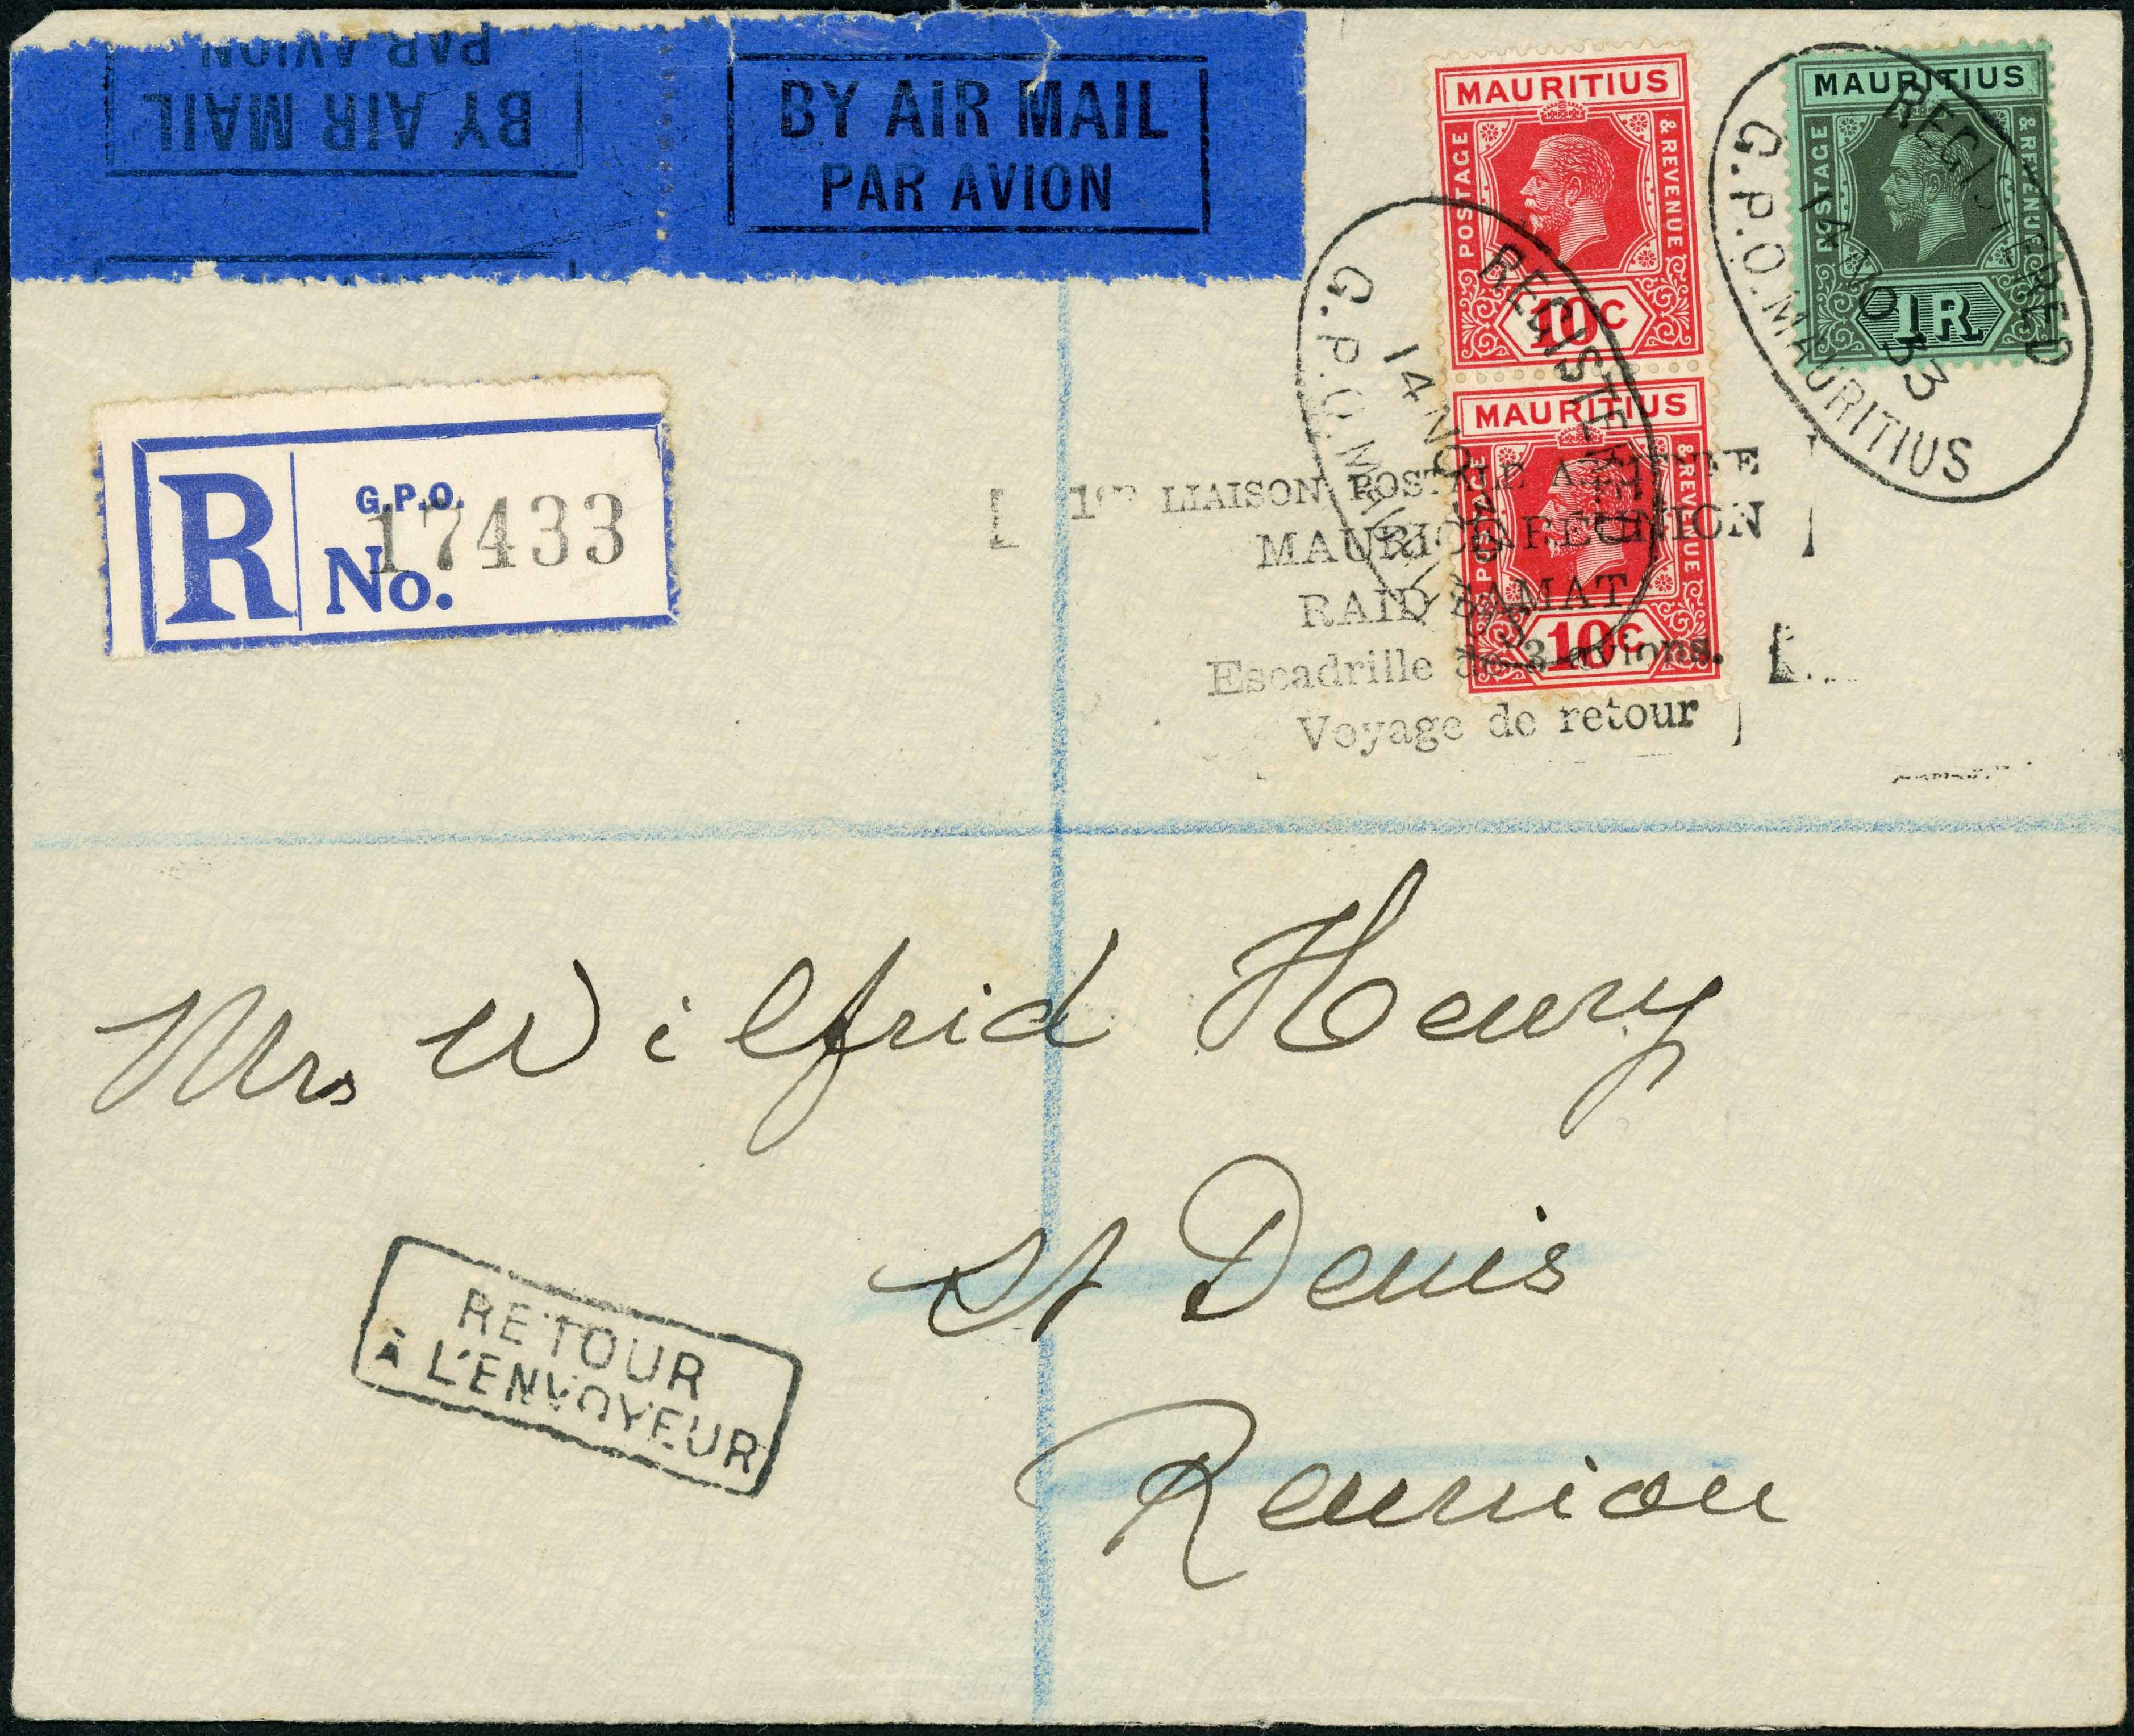 BY AIR MAIL
PAR AVION
BY AIR MAIL
PAR AVION
MAURITIUS
POSTAGE & REVENUE
10c
MAURITIUS
POSTAGE & REVENUE
10c
MAURITIUS
POSTAGE & REVENUE
1R.
REGISTERED
14 NO 33
G.P.O. MAURITIUS
REGISTERED
14 NO 33
G.P.O. MAURITIUS
R
G.P.O.
No. 17433
LIAISON POSTALE
MAURICE REUNION
RAID SAMAT
Escadrille de 3 avions.
Voyage de retour
Mrs Wilfrid Henry
St Denis
Reunion
RETOUR
À L'ENVOYEUR